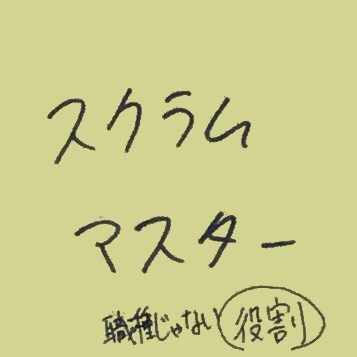 スクラム
マスター
職種じゃない 役割